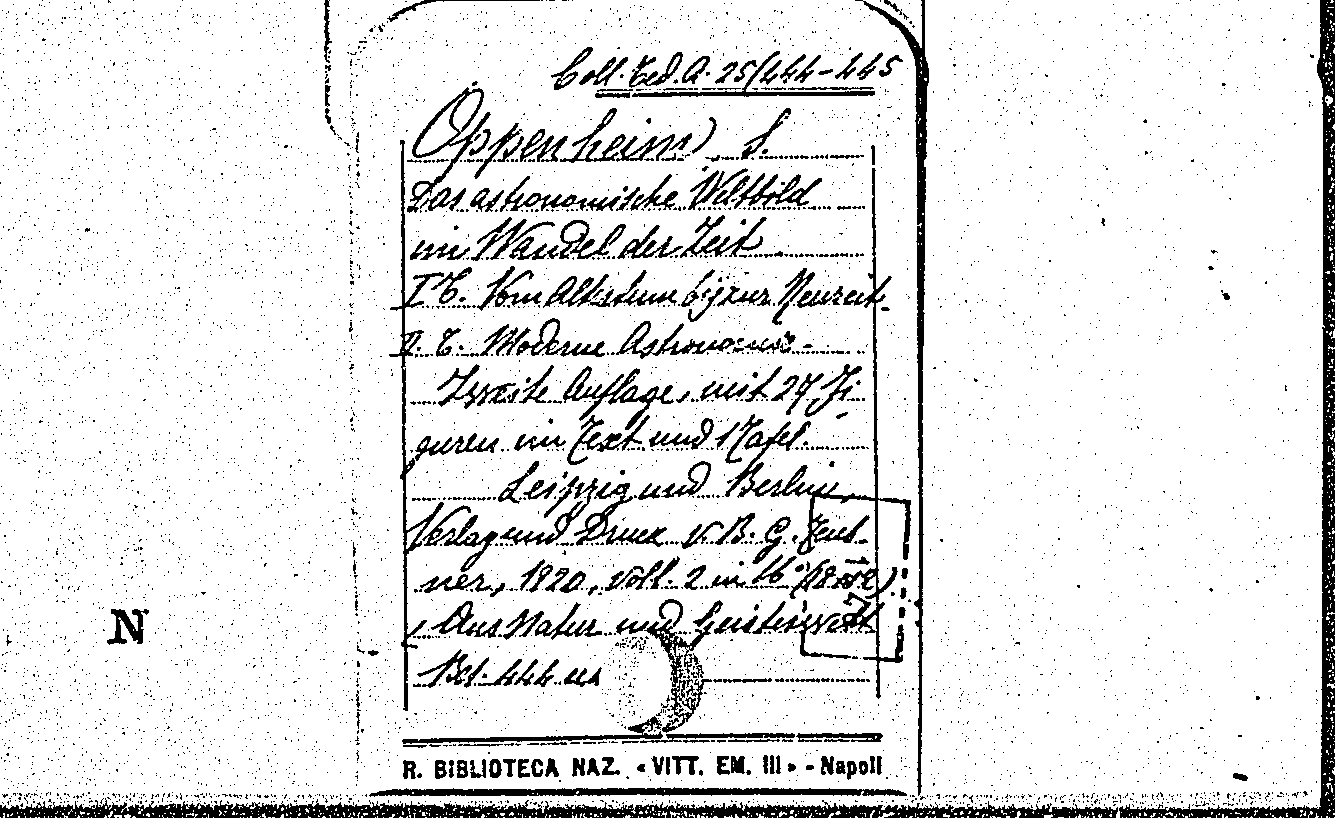 Coll. Ted. A. 25/444-445
Oppenheim, S.
Das astronomische Weltbild
im Wandel der Zeit
I T. Vom Altertum bis zur Neuzeit.
II. T. Moderne Astronomie.
Zweite Auflage, mit 27 Fi
guren im Text und 1 Tafel.
Leipzig und Berlin,
Verlag und Druck v. B. G. Teub-
ner, 1920, voll. 2 in 16°
Aus Natur und Geisteswelt
Bd. 444
N
R. BIBLIOTECA NAZ. « VITT. EM. III » - Napoli